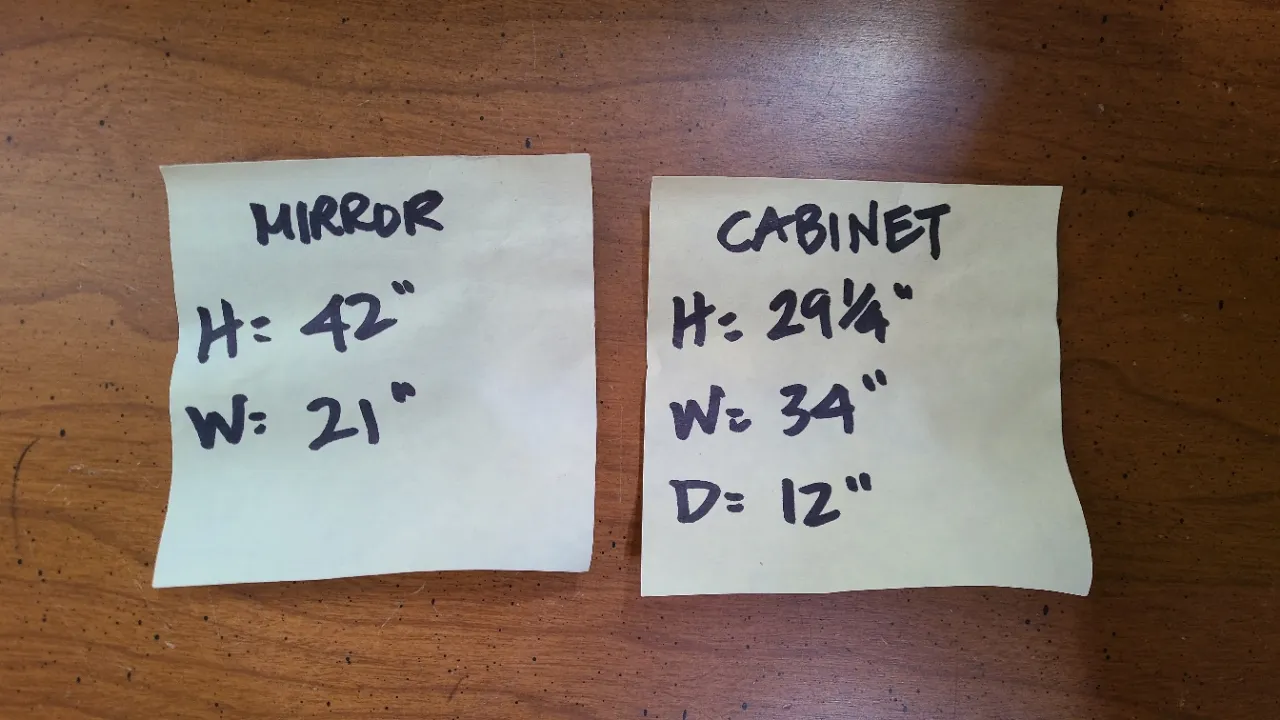 MIRROR
H= 42"
W= 21"
CABINET
H= 29 1/4"
W= 34"
D= 12"